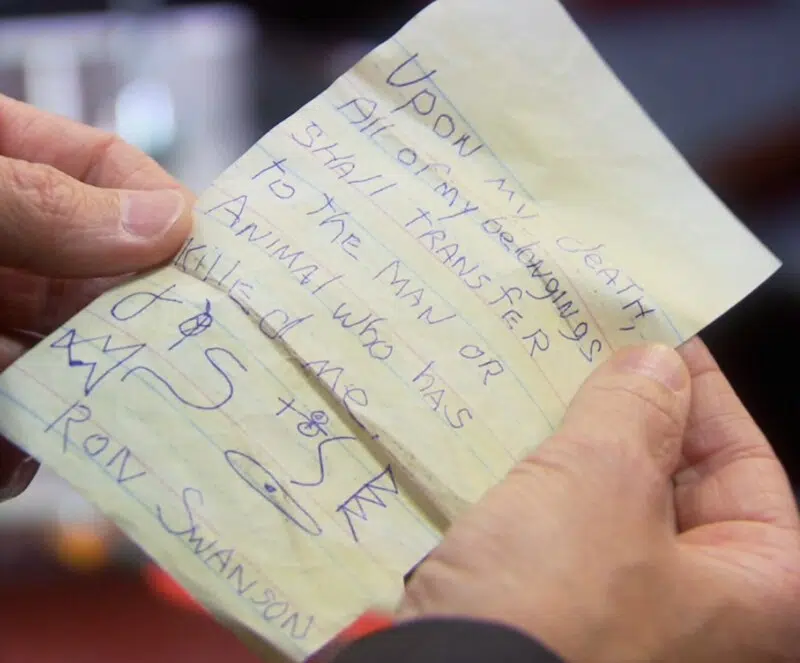 UPON MY dEATH,
All OF my belongings
SHAll TRANSfER
to THE MAN OR
ANIMAl WHO HAS
KillEd ME.
RON SWANSON